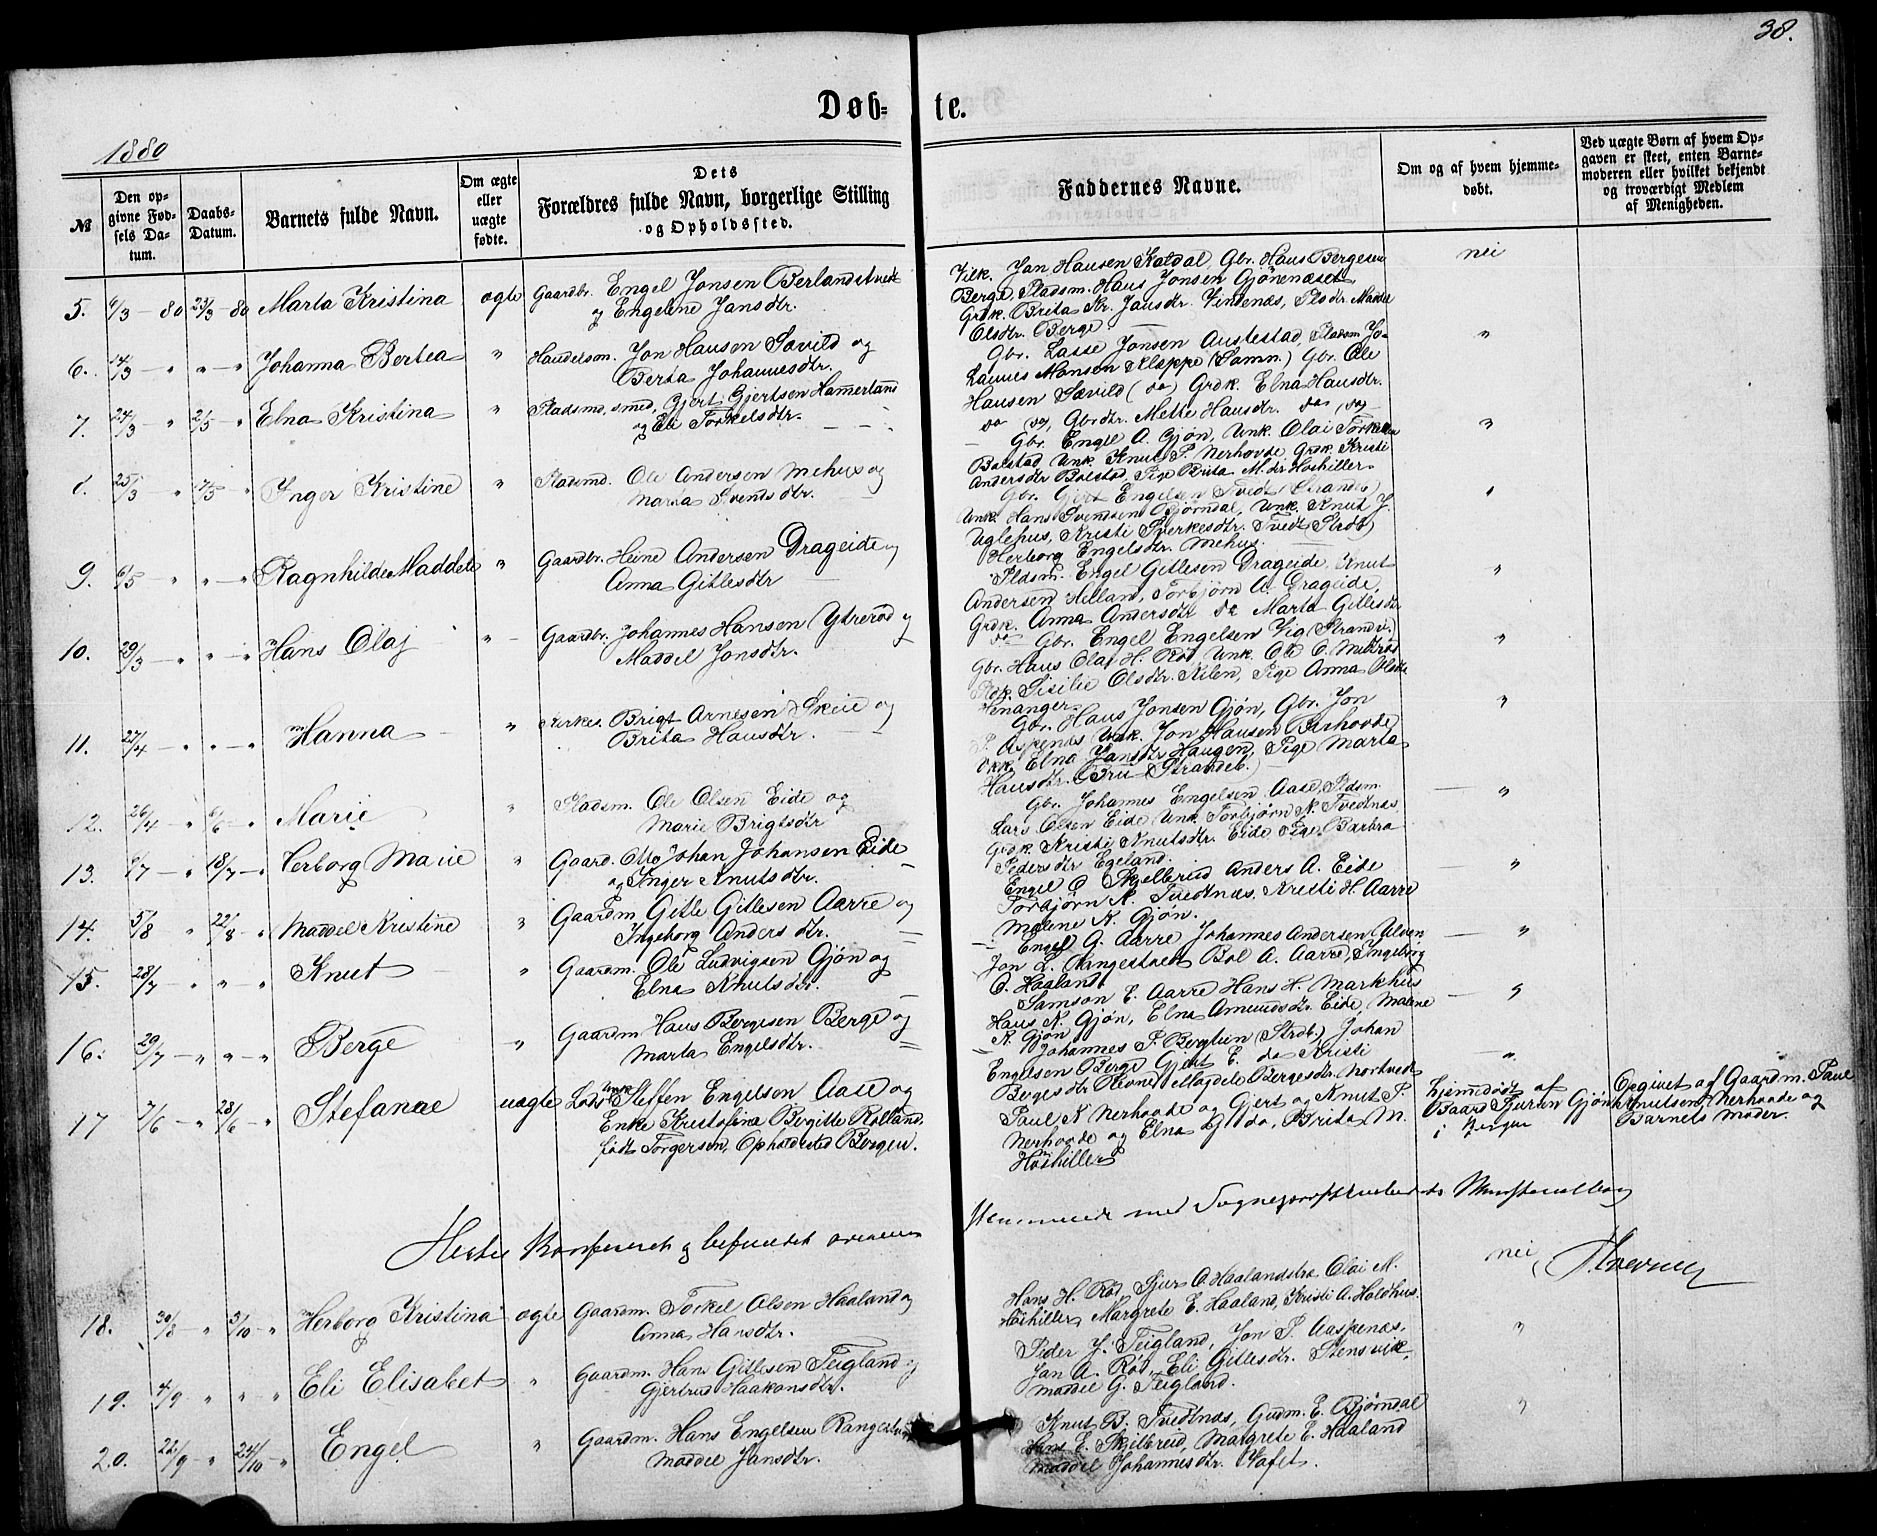 38.
Døb- te.
1880
№
Den opgivne Fødsels Datum.
Daabs-Datum.
Barnets fulde Navn.
Om ægte eller uægte fødte.
Dets Forældres fulde Navn, borgerlige Stilling og Opholdssted.
Faddernes Navne.
Om og af hvem hjemmedøbt.
Ved uægte Børn af hvem Opgaven er skeet, enten Barnemoderen eller hvilket bekjendt og troværdigt Medlem af Menigheden.
5. 6/3 - 80 23/3 - 80 Marta Kristina ægte Gaardbr. Engel Jonsen Berlandstvedt
og Engeline Jansdtr.
Jan Hansen Kaldal, Gbr. Hans Bergesen
Berge, Pladsm. Hans Jonsen Gjönenæset
Grdk. Brita Kr. Jansdtr. Vintenæs, Maddel
Olsdtr. Berge
nei
6. 14/3 - " " - " Johanna Bertea " Handelsm. Jon Hansen Sævild og
Berta Johannesdtr.
Gbr. Lasse Jonsen Austestad, Pladsm. Jo-
hannes Monsen Kleppe (Samn.) Gbr. Ole
Hansen Sævild (do) Grdk. Elna Hansdtr.
do (do), Gbrdtr. Mette Hansdtr. do (do)
"
7. 24/3 - " 2/5 " Elna Kristina " Pladsmd, smed, Gjert Gjertsen Hamerland
og Eli Torkelsdtr.
Gbr. Engel A. Gjøn, Unk. Olai Torkelsen
Bolstad Unk. Knut P. Nerhovde, Grdk. Kristi
Andersdtr Bolstad, Pige Brita M. dtr Høshiller
"
8. 25/3 - " 17/5 - " Inger Kristine " Pladsmd. Ole Andersen Mehus og
Marta Svendsdtr.
Gbr. Gjert Engelsen Tvedt (Strandeb)
Unk. Hans Svendsen Bjørndal, Unk. Knut J.
Uglehus, Kristi Sverkesdtr. Tvedt (Strdb)
Herborg Engelsdtr. Mehus.
"
9. 6/5 " " " - " Ragnhilde Maddele " Gaardbr. Heine Andersen Drageide og
Anna Gitlesdtr
Pldsm. Engel Gitlesen Drageide, Knut
Andersen Helland, Torbjørn A. Drageide,
Grdk. Anna Andersdtr do Marta Gitlesdtr
do
"
10. 29/3 - " " - " Hans Olaj " - Gaardbr. Johannes Hansen Ytrerød og
Maddel Jonsdtr.
Gbr. Engel Engelsen Vig (Strandv.)
Gbr. Hans Olai H. Rød Unk. Ole O. Midtrød
Sisilie Olsdtr. Kilen, Pige Anna
Henanger
"
11. 27/4 - " " - " Hanna " Kirkes. Brigt Arnesen Skeie og
Brita Hansdtr.
Gbr. Hans Jonsen Gjøn, Gbr. Jon
P. Aspenæs Unk. Jon Hansen Berhovde
Elna Jansdtr Haugen, Pige Marta
Hansdtr. Bru (Strandeb.)
"
12. 26/4 - " 6/6 - " Marie " Pladsm. Ole Olsen Eide og
Marie Brigtsdtr
Gbr. Johannes Engelsen Aase, Pldsm.
Lars Olsen Eide Unk. Torbjørn N. Tvedtnæs
Grdk. Kristi Knutsdtr. Eide Pige Barbra
Pedersdtr Egeland.
"
13. 6/7 - " 18/7 - " Herborg Marie " Gaard. Otto Johan Johansen Eide
og Inger Knutsdtr.
Engel O Skjelbreid Anders A. Eide
Torbjørn N. Tvedtnæs, Kristi H. Aarre
Malene K. Gjøn.
"
14. 5/8 " 22/8 " Maddel Kristine " Gaardm Gitle Gitlesen Aarre og
Ingeborg Andersdtr.
Engel G. Aarre Johannes Andersen Ulven
Jon L. Rangestvedt Bol A. Aarre, Ingeborg
O. Haaland
"
15. 28/7 " " " Knut " Gaardm. Ole Ludvigsen Gjøn og
Elna Knutsdtr.
Samson E. Aarre Hans H. Markhus
Hans N. Gjøn, Elna Amundsdtr. Eide, Malene
K Gjøn
"
16. 29/7 - " " - " Berge " Gaardm Hans Bergesen Berge og
Marta Engelsdtr.
Johannes P. Berghein (Strdb.) Johan
Engelsen Berge Gjert E. do Kristi
Bergesdtr Magdele Bergesdtr. Nortvedt
"
17 7/6 - " 28/6 " Stefanae uægte Lods Steffen Engelsen Aase og
Enke Kristofina Birgitte Rolland,
født Torgersen, Opholdssted Bergen.
Paul K Nerhovde og Gjert og Knut P.
Nerhovde og Elna G do, Brita M.
Høshiller
hjemdøbt af
Baard Sjursen Gjøn
i Bergen
Opgivet af Gaardm. Paul
Knutsen Nerhovde og
Barnets Moder.
Hertil Konfereret og befundet overens
stemmende med Sognepræstembedets Ministerialbog
18. 30/8 " 3/10 - " Herborg Kristina ægte Gaardm. Torkel Olsen Haaland og
Anna Hansdtr.
Hans H. Rød, Sjur O. Haalandstræ Olai M.
Høshiller Margrete E. Haaland, Kristi A. Holdhus.
nei
19. 4/9 " " " Eli Elisabet " Gaardm. Hans Gitlesen Teigland og
Gjertrud Haakonsdtr.
Peder J. Teigland, Jon P. Aaspenæs,
Jan A. Rød, Eli Gitlesdtr. Stensvik,
Maddel G. Teigland.
"
20. 22/9 - " 24/10 - " Engel " Gaardm. Hans Engelsen Rangestvedt
Maddel Jansdtr.
Knut B. Tvedtnæs, Gudm. E. Bjørndal
Hans E. Skjelbreid, Margrete E. Haaland
Maddel Johannesdtr. Hafet.
"